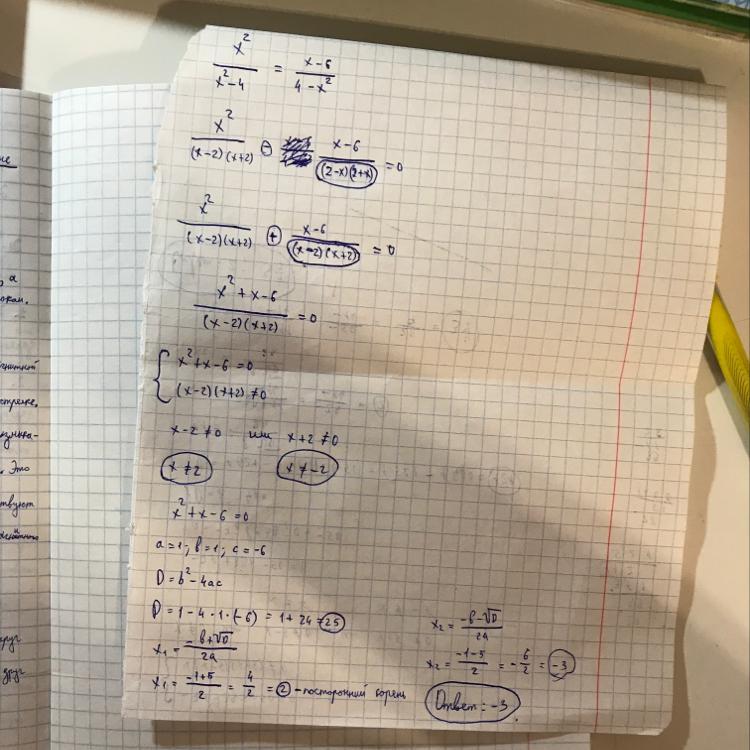 x²/(x²-4) = (x-6)/(4-x²)
x²/((x-2)(x+2)) - (x-6)/((2-x)(2+x)) = 0
x²/((x-2)(x+2)) + (x-6)/((x-2)(x+2)) = 0
(x²+x-6)/((x-2)(x+2)) = 0
{ x²+x-6=0
(x-2)(x+2)≠0
x-2≠0 или x+2≠0
x≠2 x≠-2
x²+x-6=0
a=1; b=1; c=-6
D=b²-4ac
D=1-4·1·(-6)=1+24=25
x₁=(-b+√D)/2a
x₁=(-1+5)/2=4/2=2-посторонний корень
x₂=(-b-√D)/2a
x₂=(-1-5)/2=-6/2=-3
Ответ: -3
не
а
стрелке.
Это
друг